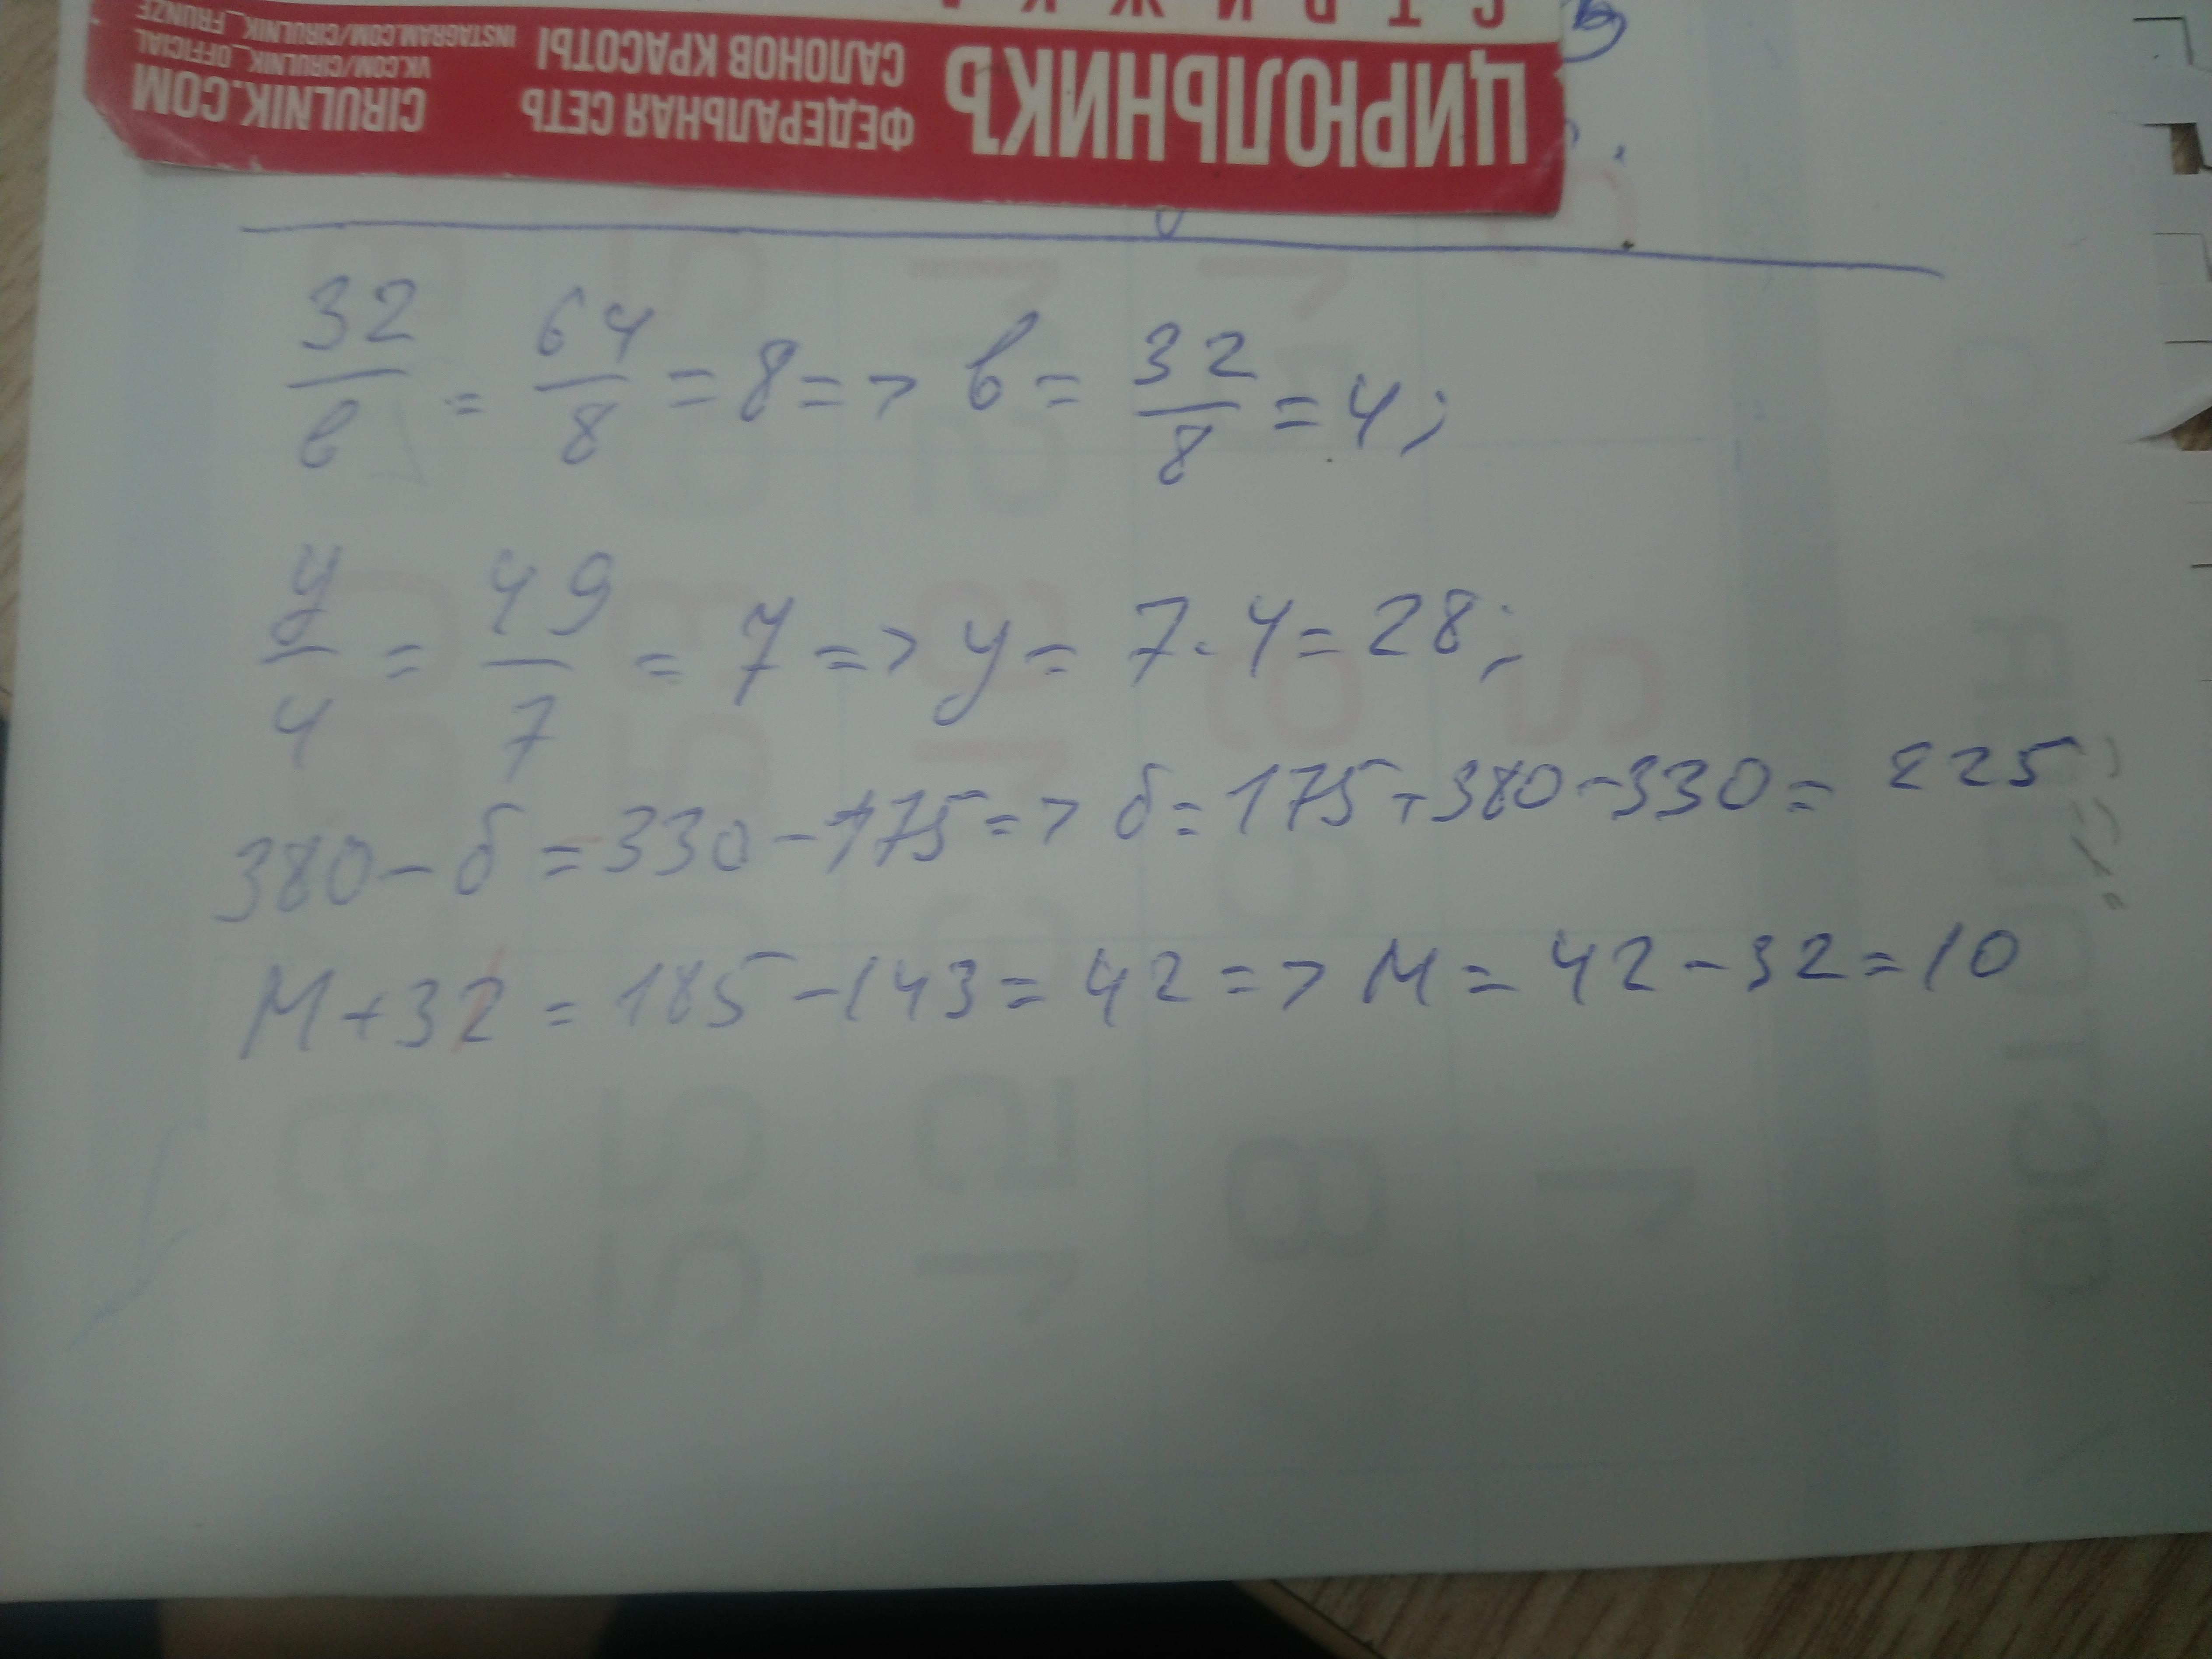 С Т Р И Ж К А
ЦИРЮЛЬНИКЪ
ФЕДЕРАЛЬНАЯ СЕТЬ
САЛОНОВ КРАСОТЫ
CIRULNIK.COM
VK.COM/CIRULNIK_OFFICIAL
INSTAGRAM.COM/CIRULNIK_FRUNZE
32/в = 64/8 = 8 => в = 32/8 = 4;
у/4 = 49/7 = 7 => у = 7·4 = 28;
380 - б = 330 - 175 => б = 175 + 380 - 330 = 225
М + 32 = 185 - 143 = 42 => М = 42 - 32 = 10